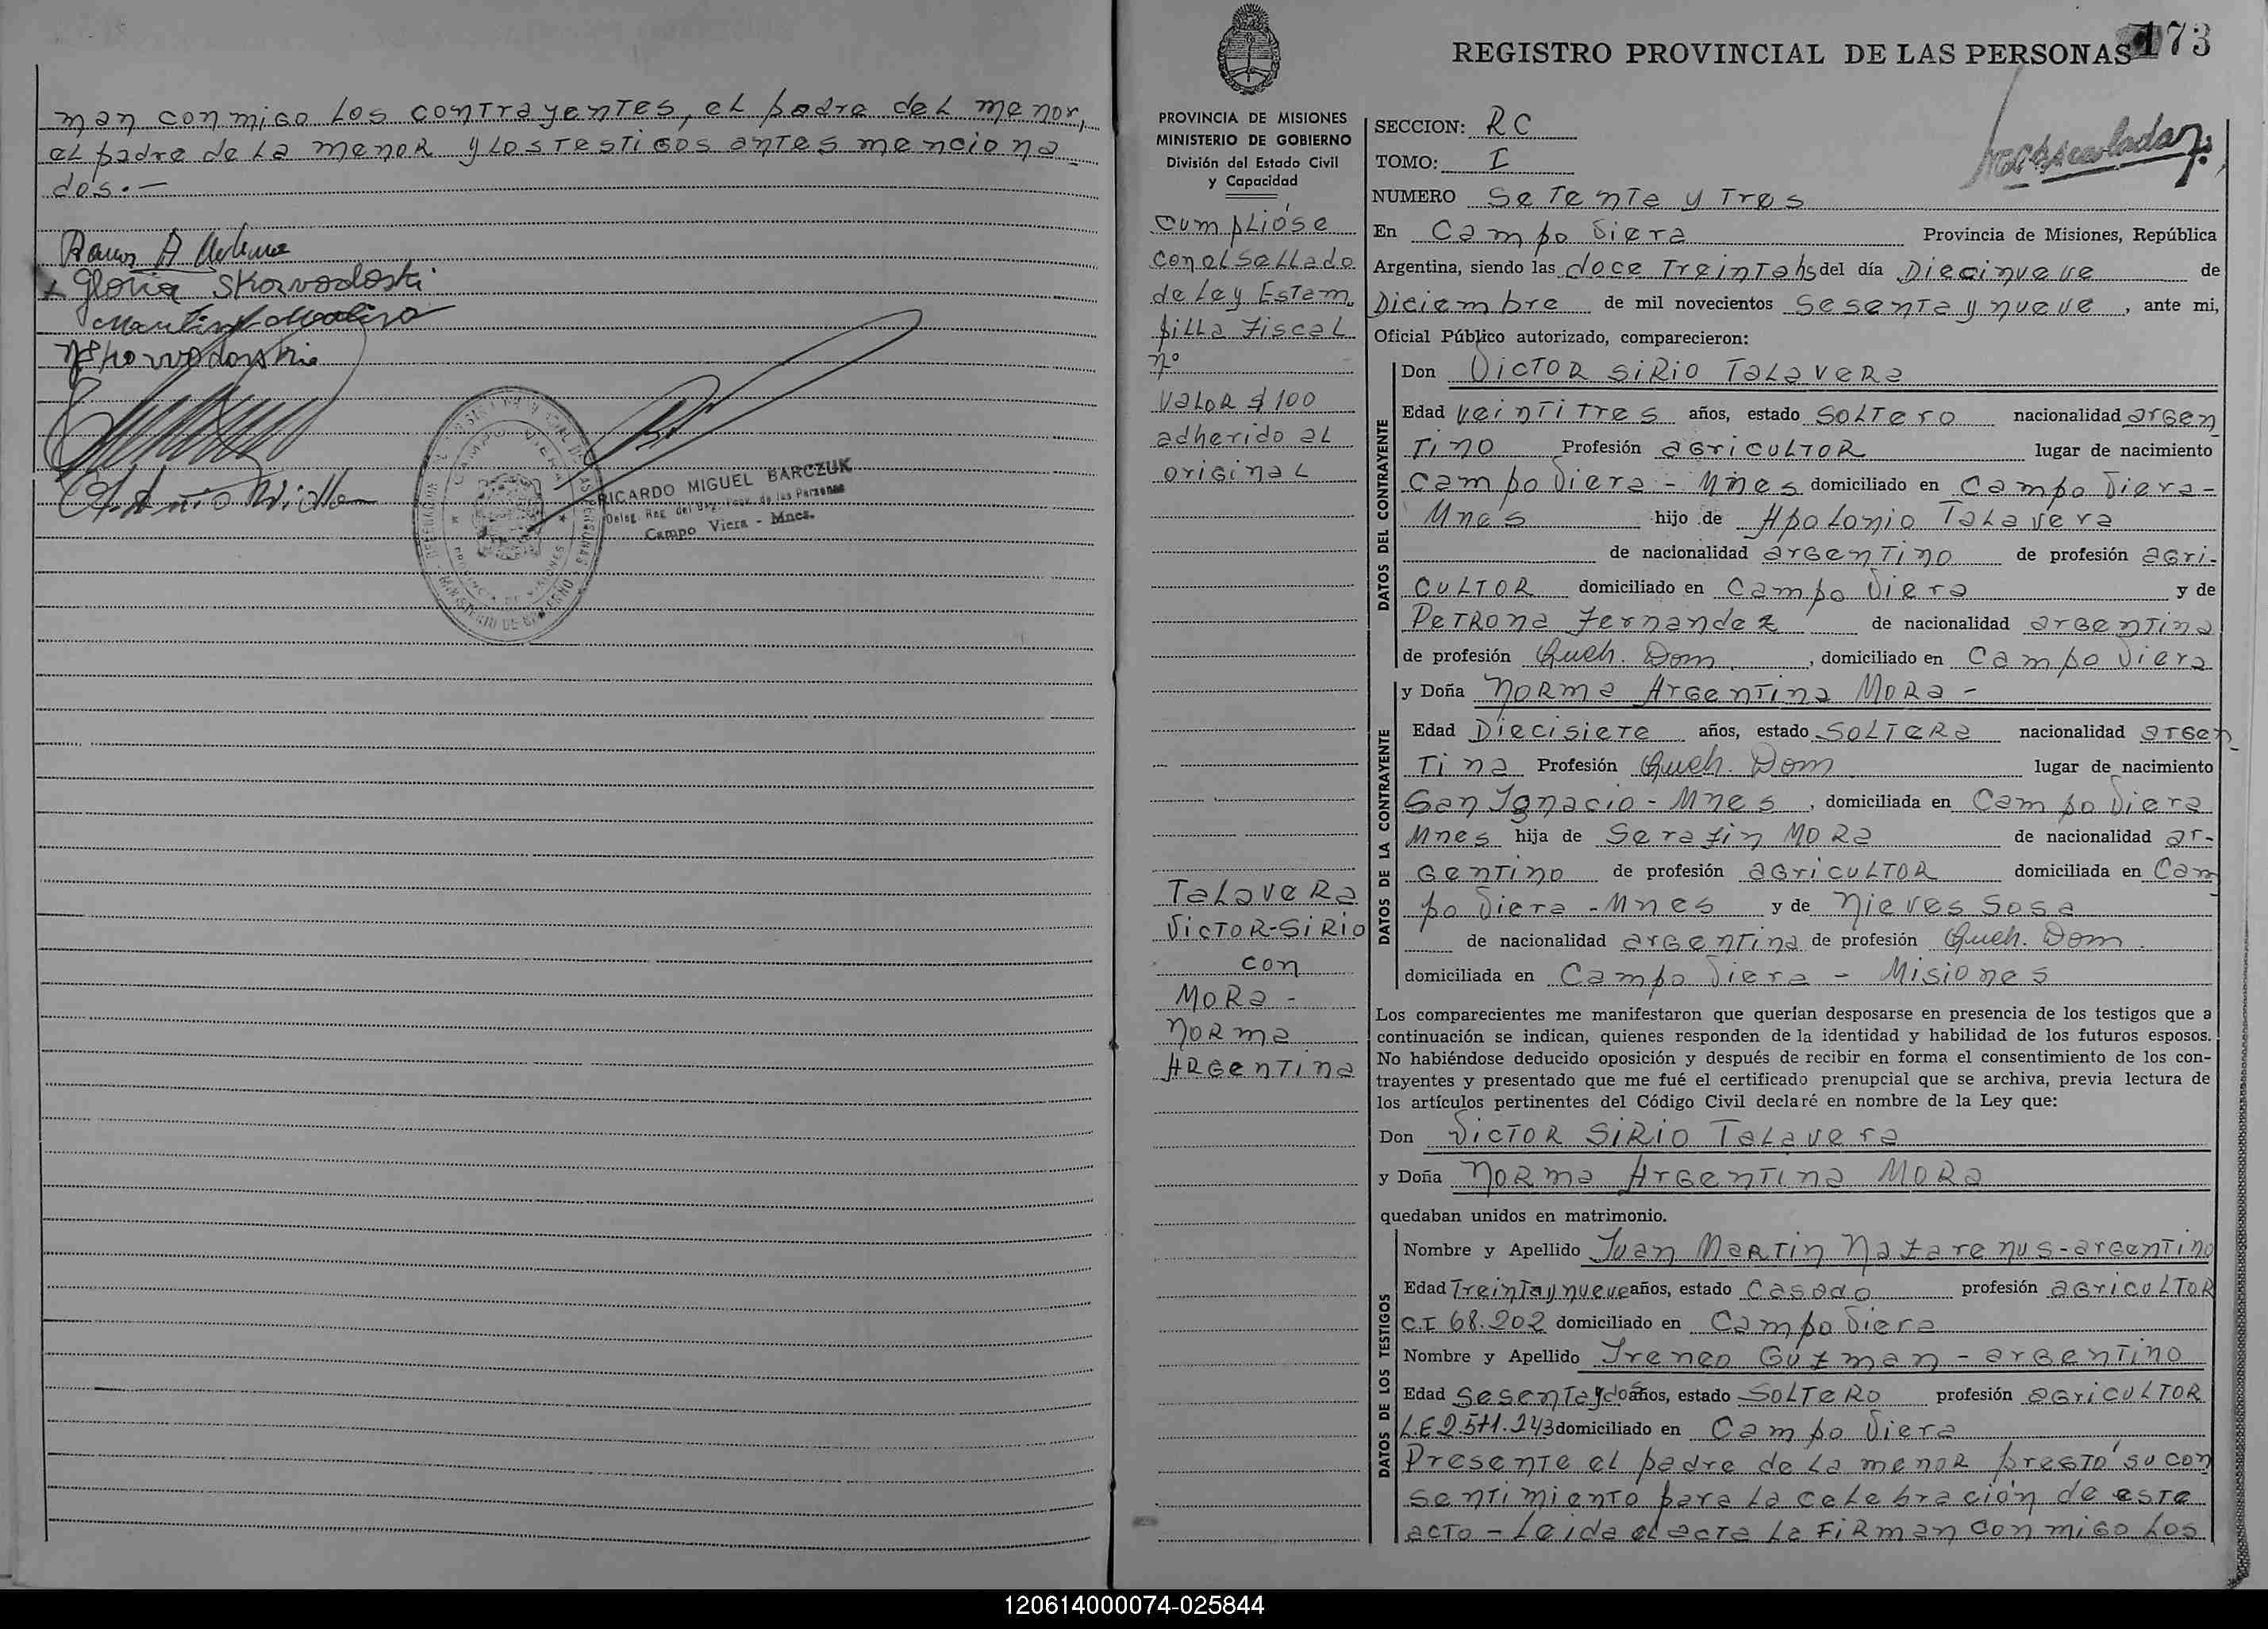 man conmigo los contrayentes, el padre del menor,
el padre de la menor y los testigos antes menciona
dos.-
Gloria Skowodoski
RICARDO MIGUEL BARCZUK
Deleg. Reg. del Reg. Prov. de las Personas
Campo Viera - Mnes.
173
REGISTRO PROVINCIAL DE LAS PERSONAS
PROVINCIA DE MISIONES
MINISTERIO DE GOBIERNO
División del Estado Civil
y Capacidad
Cumplióse
con el sellado
de Ley Estam
pilla Fiscal
nº
Valor $ 100
adherido al
original
Talavera
Victor-Sirio
con
Mora -
Norma
Argentina
SECCION: RC
TOMO: I
NUMERO Setenta y Tres
En Campo Viera Provincia de Misiones, República
Argentina, siendo las doce treinta hs del día Diecinueve de
Diciembre de mil novecientos Sesenta y nueve, ante mi,
Oficial Público autorizado, comparecieron:
DATOS DEL CONTRAYENTE
Don Victor Sirio Talavera
Edad veintitres años, estado soltero nacionalidad argen
tino Profesión agricultor lugar de nacimiento
Campo Viera - Mnes domiciliado en Campo Viera -
Mnes hijo de Apolonio Talavera
de nacionalidad argentino de profesión agri-
cultor domiciliado en Campo Viera y de
Petrona Fernandez de nacionalidad argentina
de profesión Queh. Dom., domiciliado en Campo Viera
DATOS DE LA CONTRAYENTE
y Doña Norma Argentina Mora -
Edad Diecisiete años, estado soltera nacionalidad argen
tina Profesión Queh. Dom. lugar de nacimiento
San Ignacio - Mnes, domiciliada en Campo Viera
Mnes hija de Serafin Mora de nacionalidad ar-
gentino de profesión agricultor domiciliada en Cam
po Viera - Mnes y de Nieves Sosa
de nacionalidad argentina de profesión Queh. Dom.
domiciliada en Campo Viera - Misiones
Los comparecientes me manifestaron que querían desposarse en presencia de los testigos que a
continuación se indican, quienes responden de la identidad y habilidad de los futuros esposos.
No habiéndose deducido oposición y después de recibir en forma el consentimiento de los con-
trayentes y presentado que me fué el certificado prenupcial que se archiva, previa lectura de
los artículos pertinentes del Código Civil declaré en nombre de la Ley que:
Don Victor Sirio Talavera
y Doña Norma Argentina Mora
quedaban unidos en matrimonio.
DATOS DE LOS TESTIGOS
Nombre y Apellido Juan Martin Nazarenus - argentino
Edad Treinta y nueve años, estado casado profesión agricultor
C.I 68.202 domiciliado en Campo Viera
Nombre y Apellido Ireneo Guzman - argentino
Edad Sesenta y dos años, estado soltero profesión agricultor
L.E domiciliado en Campo Viera
Presente el padre de la menor prestó su con
sentimiento para la celebración de este
acto - Leida el acta la firman conmigo los
120614000074-025844